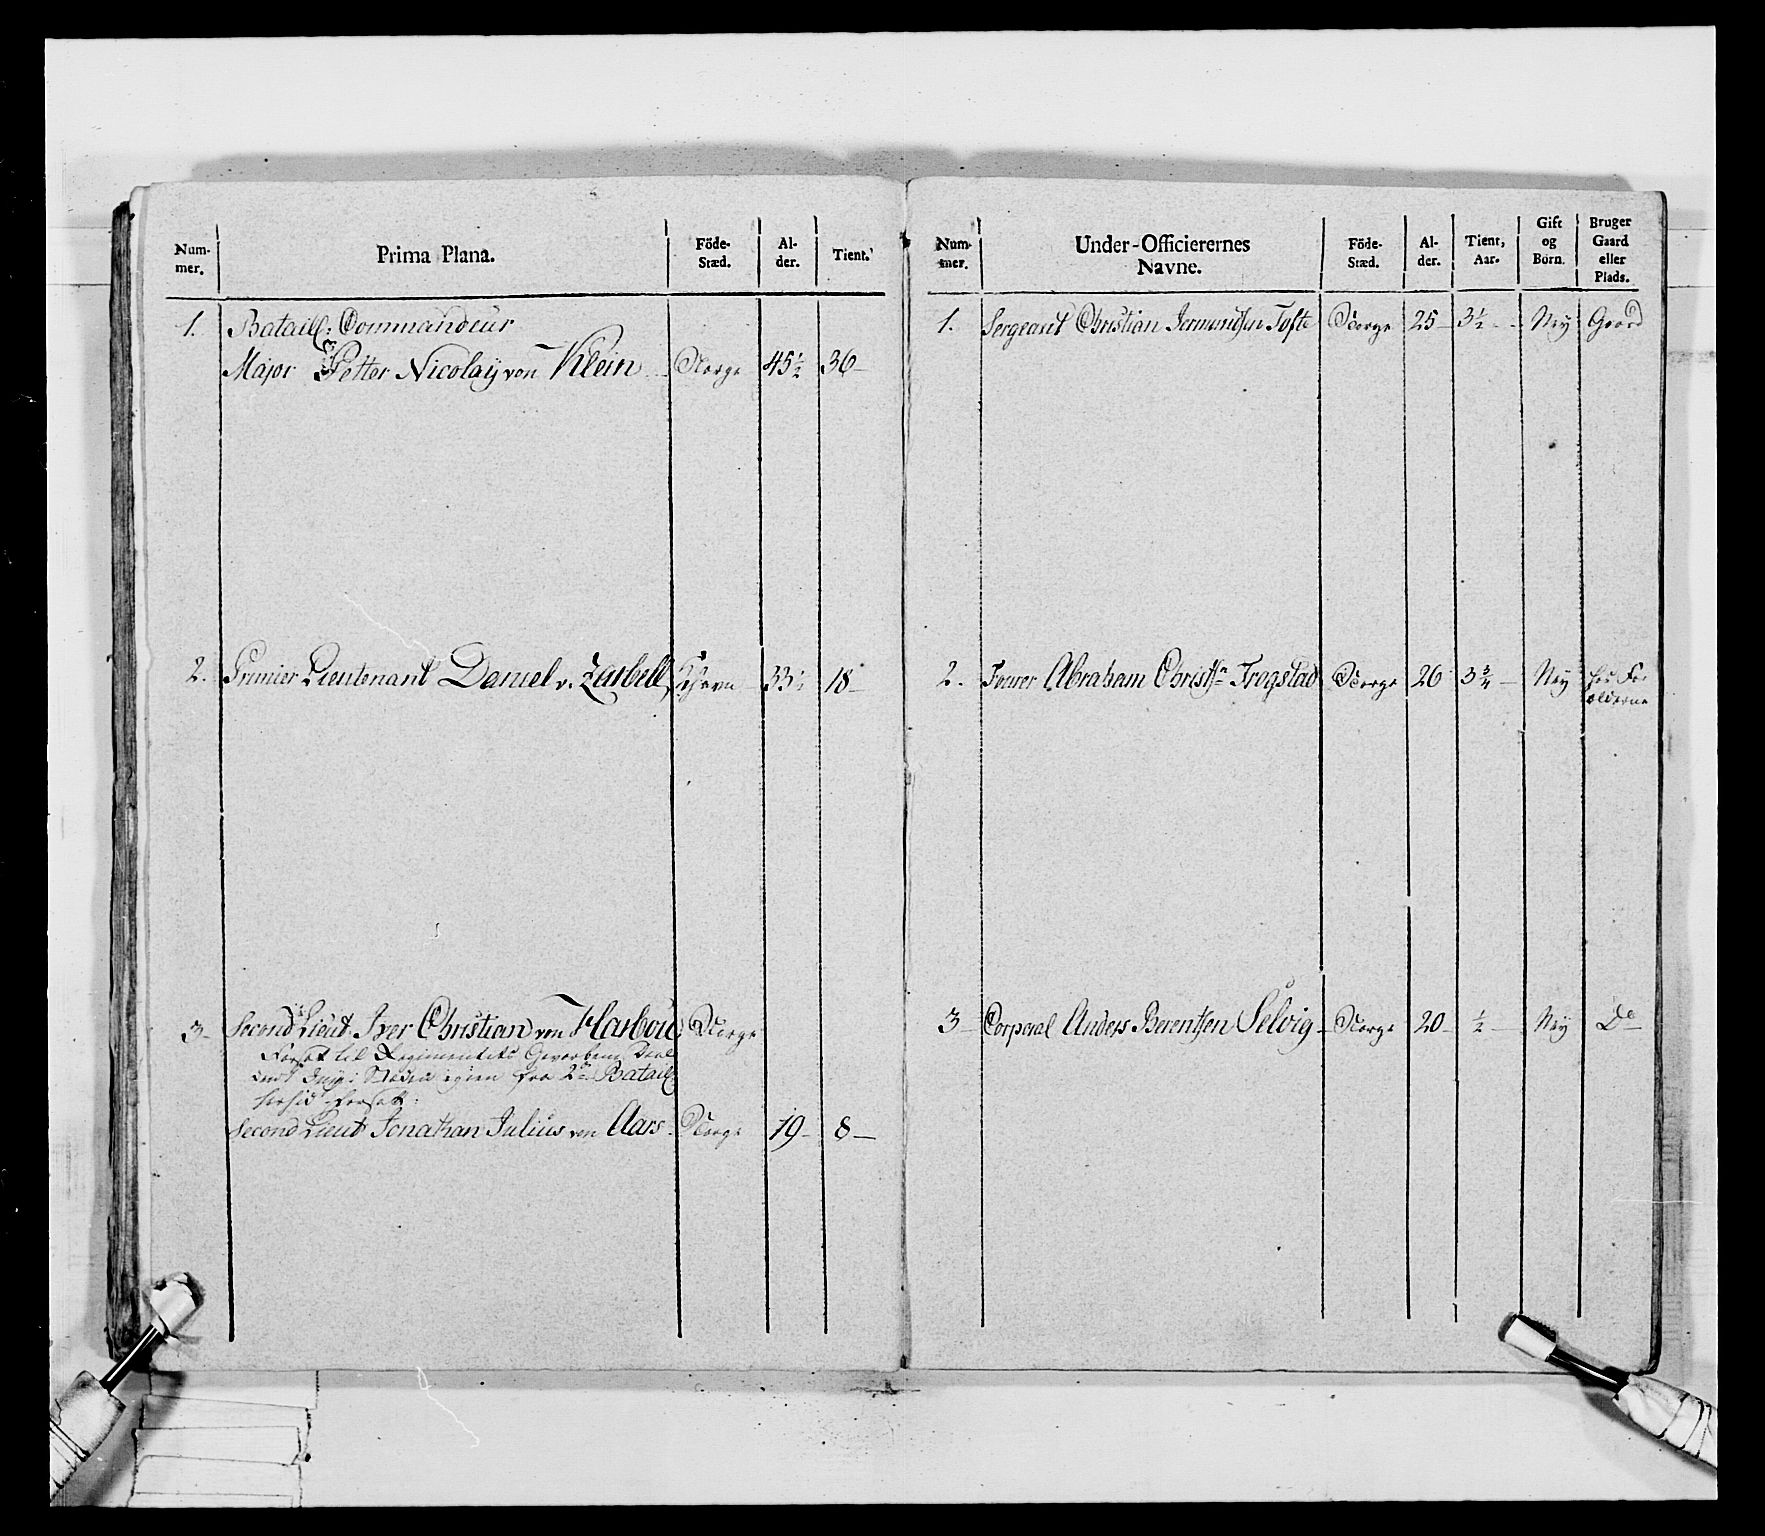 Num-
mer.
Prima Plana.
Föde-
Stæd.
Al-
der.
Tient.
1. Bataill: Commandeur
Major Petter Nicolaÿ von Klein Norge 45½ 36
2. Primier Lieutenant Daniel v. 33½ 18
3. Second Lieut: Iver Christian von Norge
Forsat til Regimentets
igien fra 2de Bataill:
forsat:
Second Lieut Jonathan Julius von Aars Norge 19 8
Num-
mer.
Under-Officierernes
Navne.
Föde-
Stæd.
Al-
der.
Tient,
Aar.
Gift
og
Börn.
Bruger
Gaard
eller
Plads.
1. Sergeant Christian Jermundsen Tofte Norge 25 3½ Neÿ Gaard
2. Fourer Abraham Christsn Frogstad Norge 26 3¾ Neÿ hos For
ældrene
3 Corporal Anders Berentsen Selvig Norge 20 ½ Neÿ Do